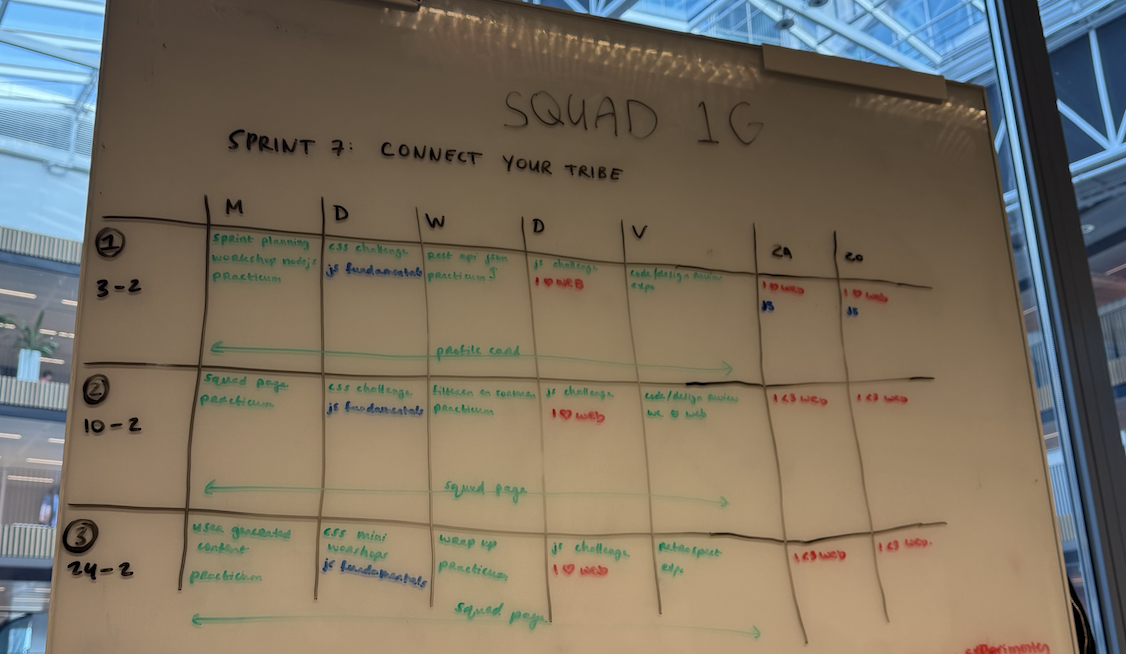 SQUAD 1G
SPRINT 7: CONNECT YOUR TRIBE
M D W D V ZA ZO
1
3-2
sprint planning
workshop nodejs
practicum
css challenge
js fundamentals
rest api json
practicum
js challenge
I ♡ WEB
code/design review
expo
I ♡ WEB
JS
I ♡ WEB
JS
profile card
2
10-2
squad page
practicum
css challenge
js fundamentals
filteren en sorteren
practicum
js challenge
I ♡ WEB
code/design review
we ♡ web
I <3 WEB
I <3 WEB
squad page
3
24-2
user generated
content
practicum
css mini
workshops
js fundamentals
wrap up
practicum
js challenge
I ♡ WEB
retrospect
expo
I <3 WEB
I <3 WEB.
squad page
experimenten